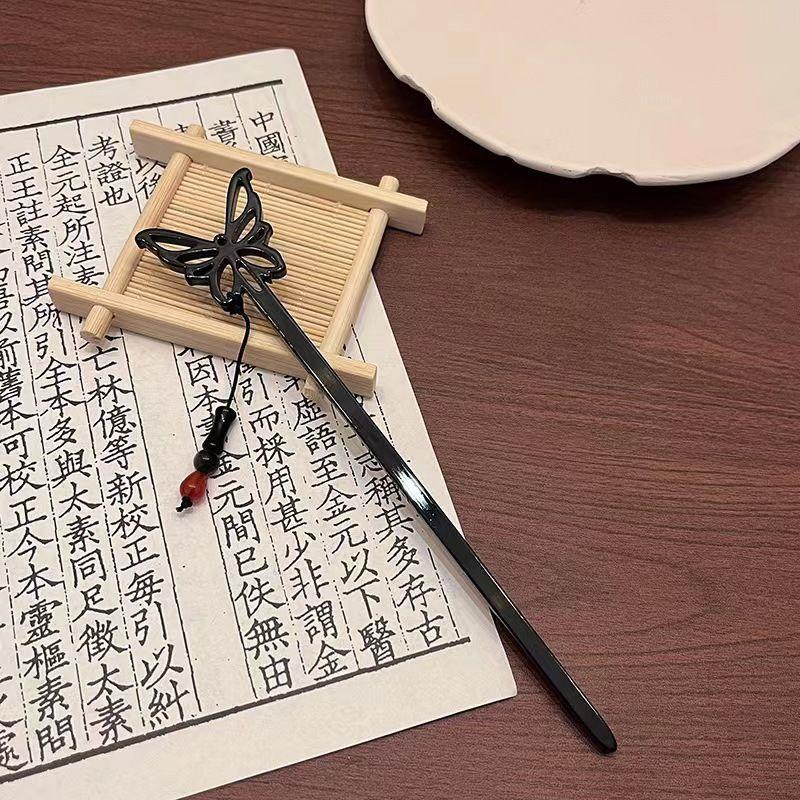 中國
稱其多存古
虛語至金元以下醫
引而採用甚少非謂金
金元間已佚無由
考證也
全元起所注素
林億等新校正每引以糾
正王註素問其所引全本多與太素同足徵太素
前舊本可校正今本靈樞素問
處